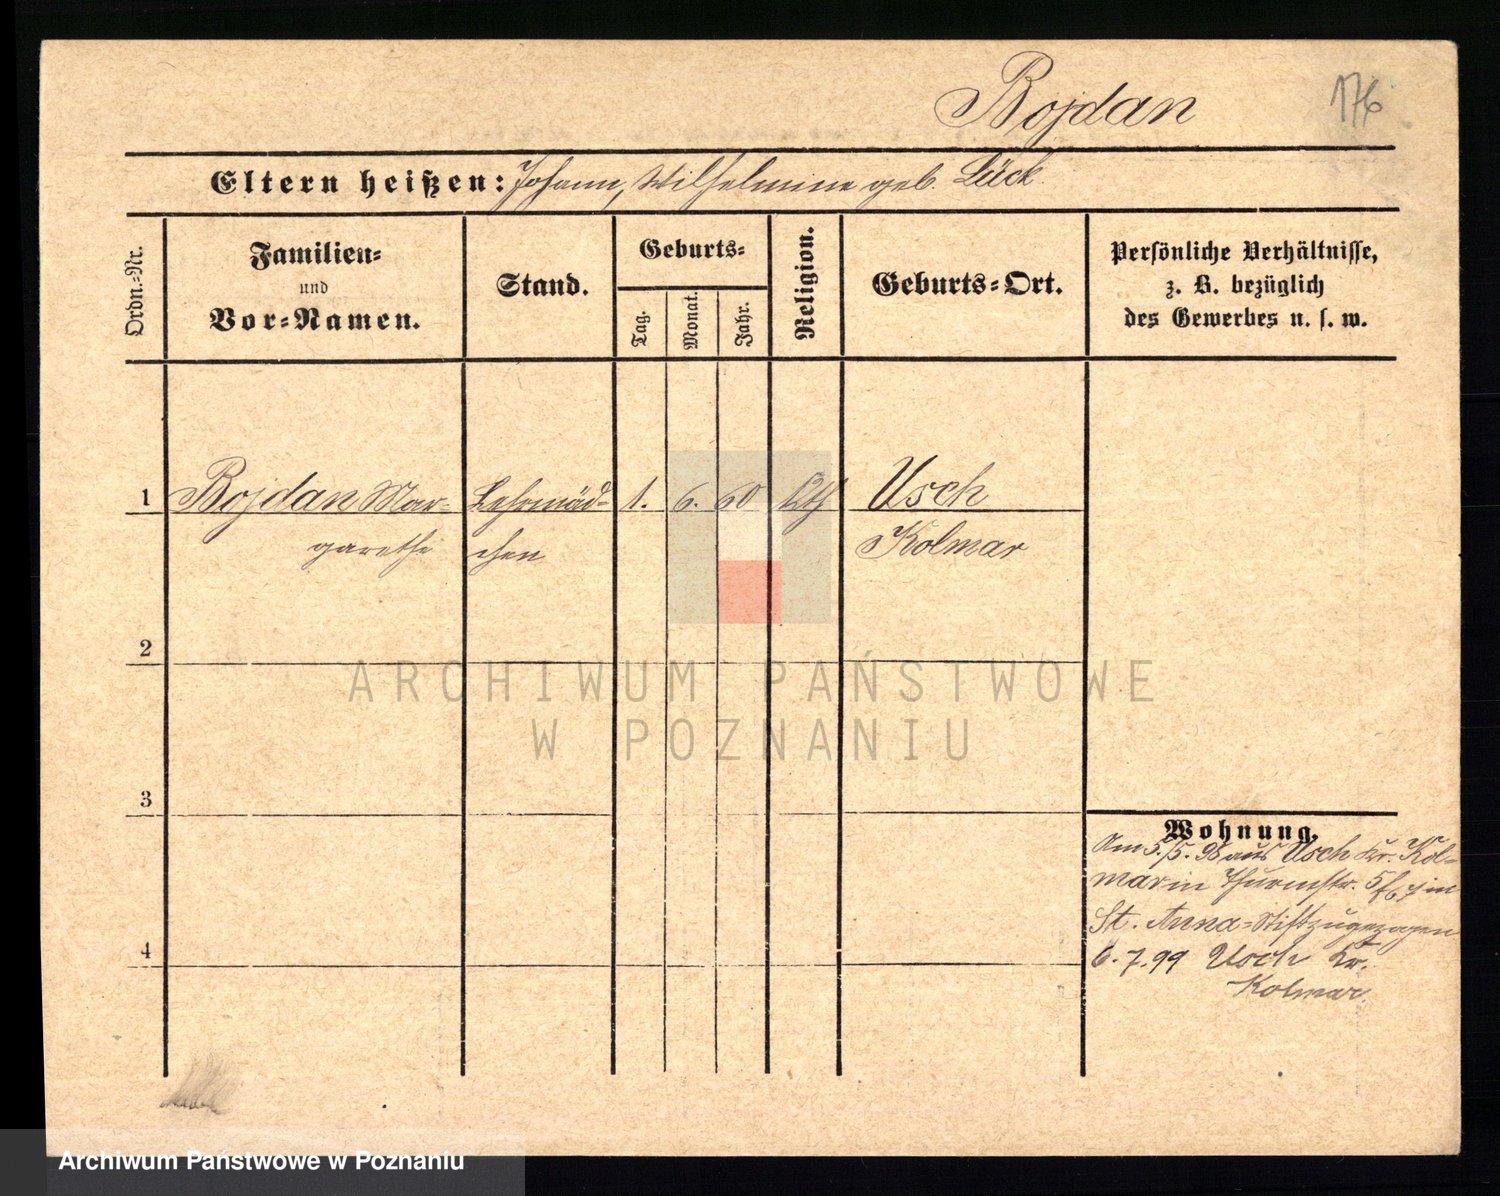 Bojdan
176
Eltern heißen: Johann, Wilhelmine geb. Lück
Ordn.-Nr.
Familien-
und
Vor-Namen.
Stand.
Geburts-
Tag.
Monat.
Jahr.
Religion.
Geburts-Ort.
Persönliche Verhältnisse,
z. B. bezüglich
des Gewerbes u. s. w.
1 Bojdan Mar- Lehrmäd- 1. 6. 60 kth Usch
garethe chen Kolmar
2
3
4
Wohnung.
Am 5./5. 98 aus Usch Kr. Kol-
mar in Thurmstr. 5 im
St. Anna-Stift zugezogen
6.7.99 Usch Kr.
Kolmar.
ARCHIWUM PAŃSTWOWE
W POZNANIU
Archiwum Państwowe w Poznaniu